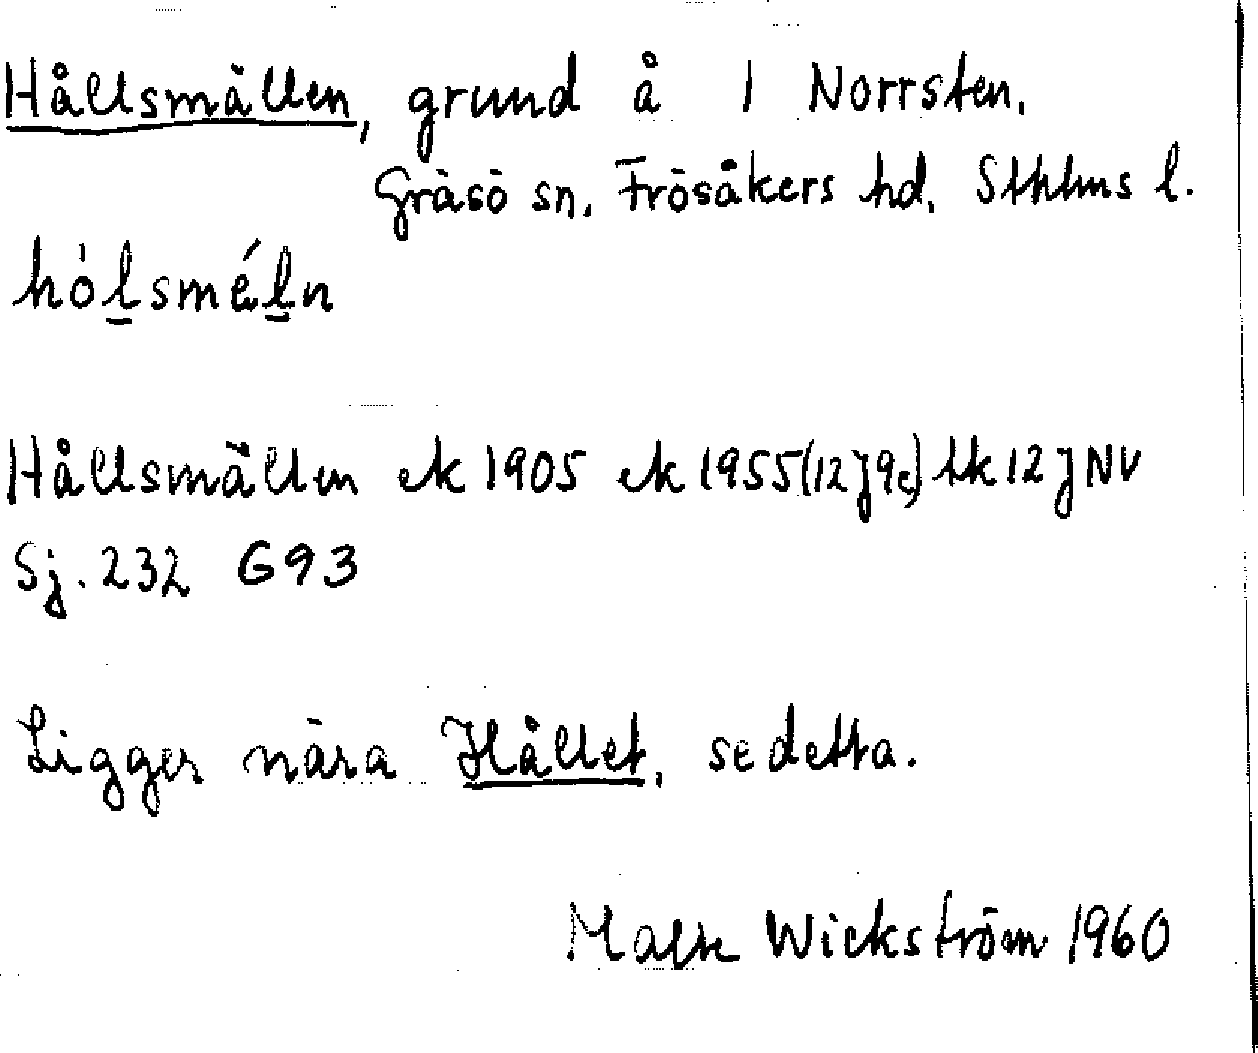 Hållsmällen, grund å 1 Norrsten.
Gräsö sn, Frösåkers hd, Sthlms l.
hó̀lsméln
Hållsmällen ek 1905 ek 1955 (12J9c) tk 12J NV
Sj. 232 G93
Ligger nära Hållet, se detta.
Malte Wickström 1960